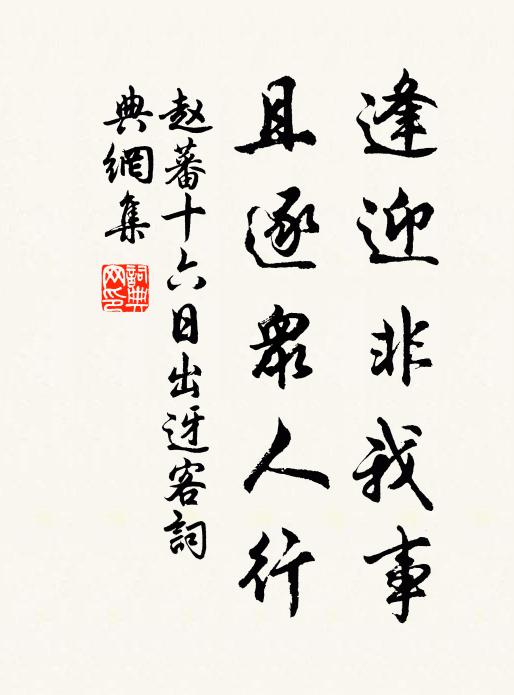 逢迎非我事
且逐眾人行
赵蕃十六日出迓客詞
典網集
詞典网印